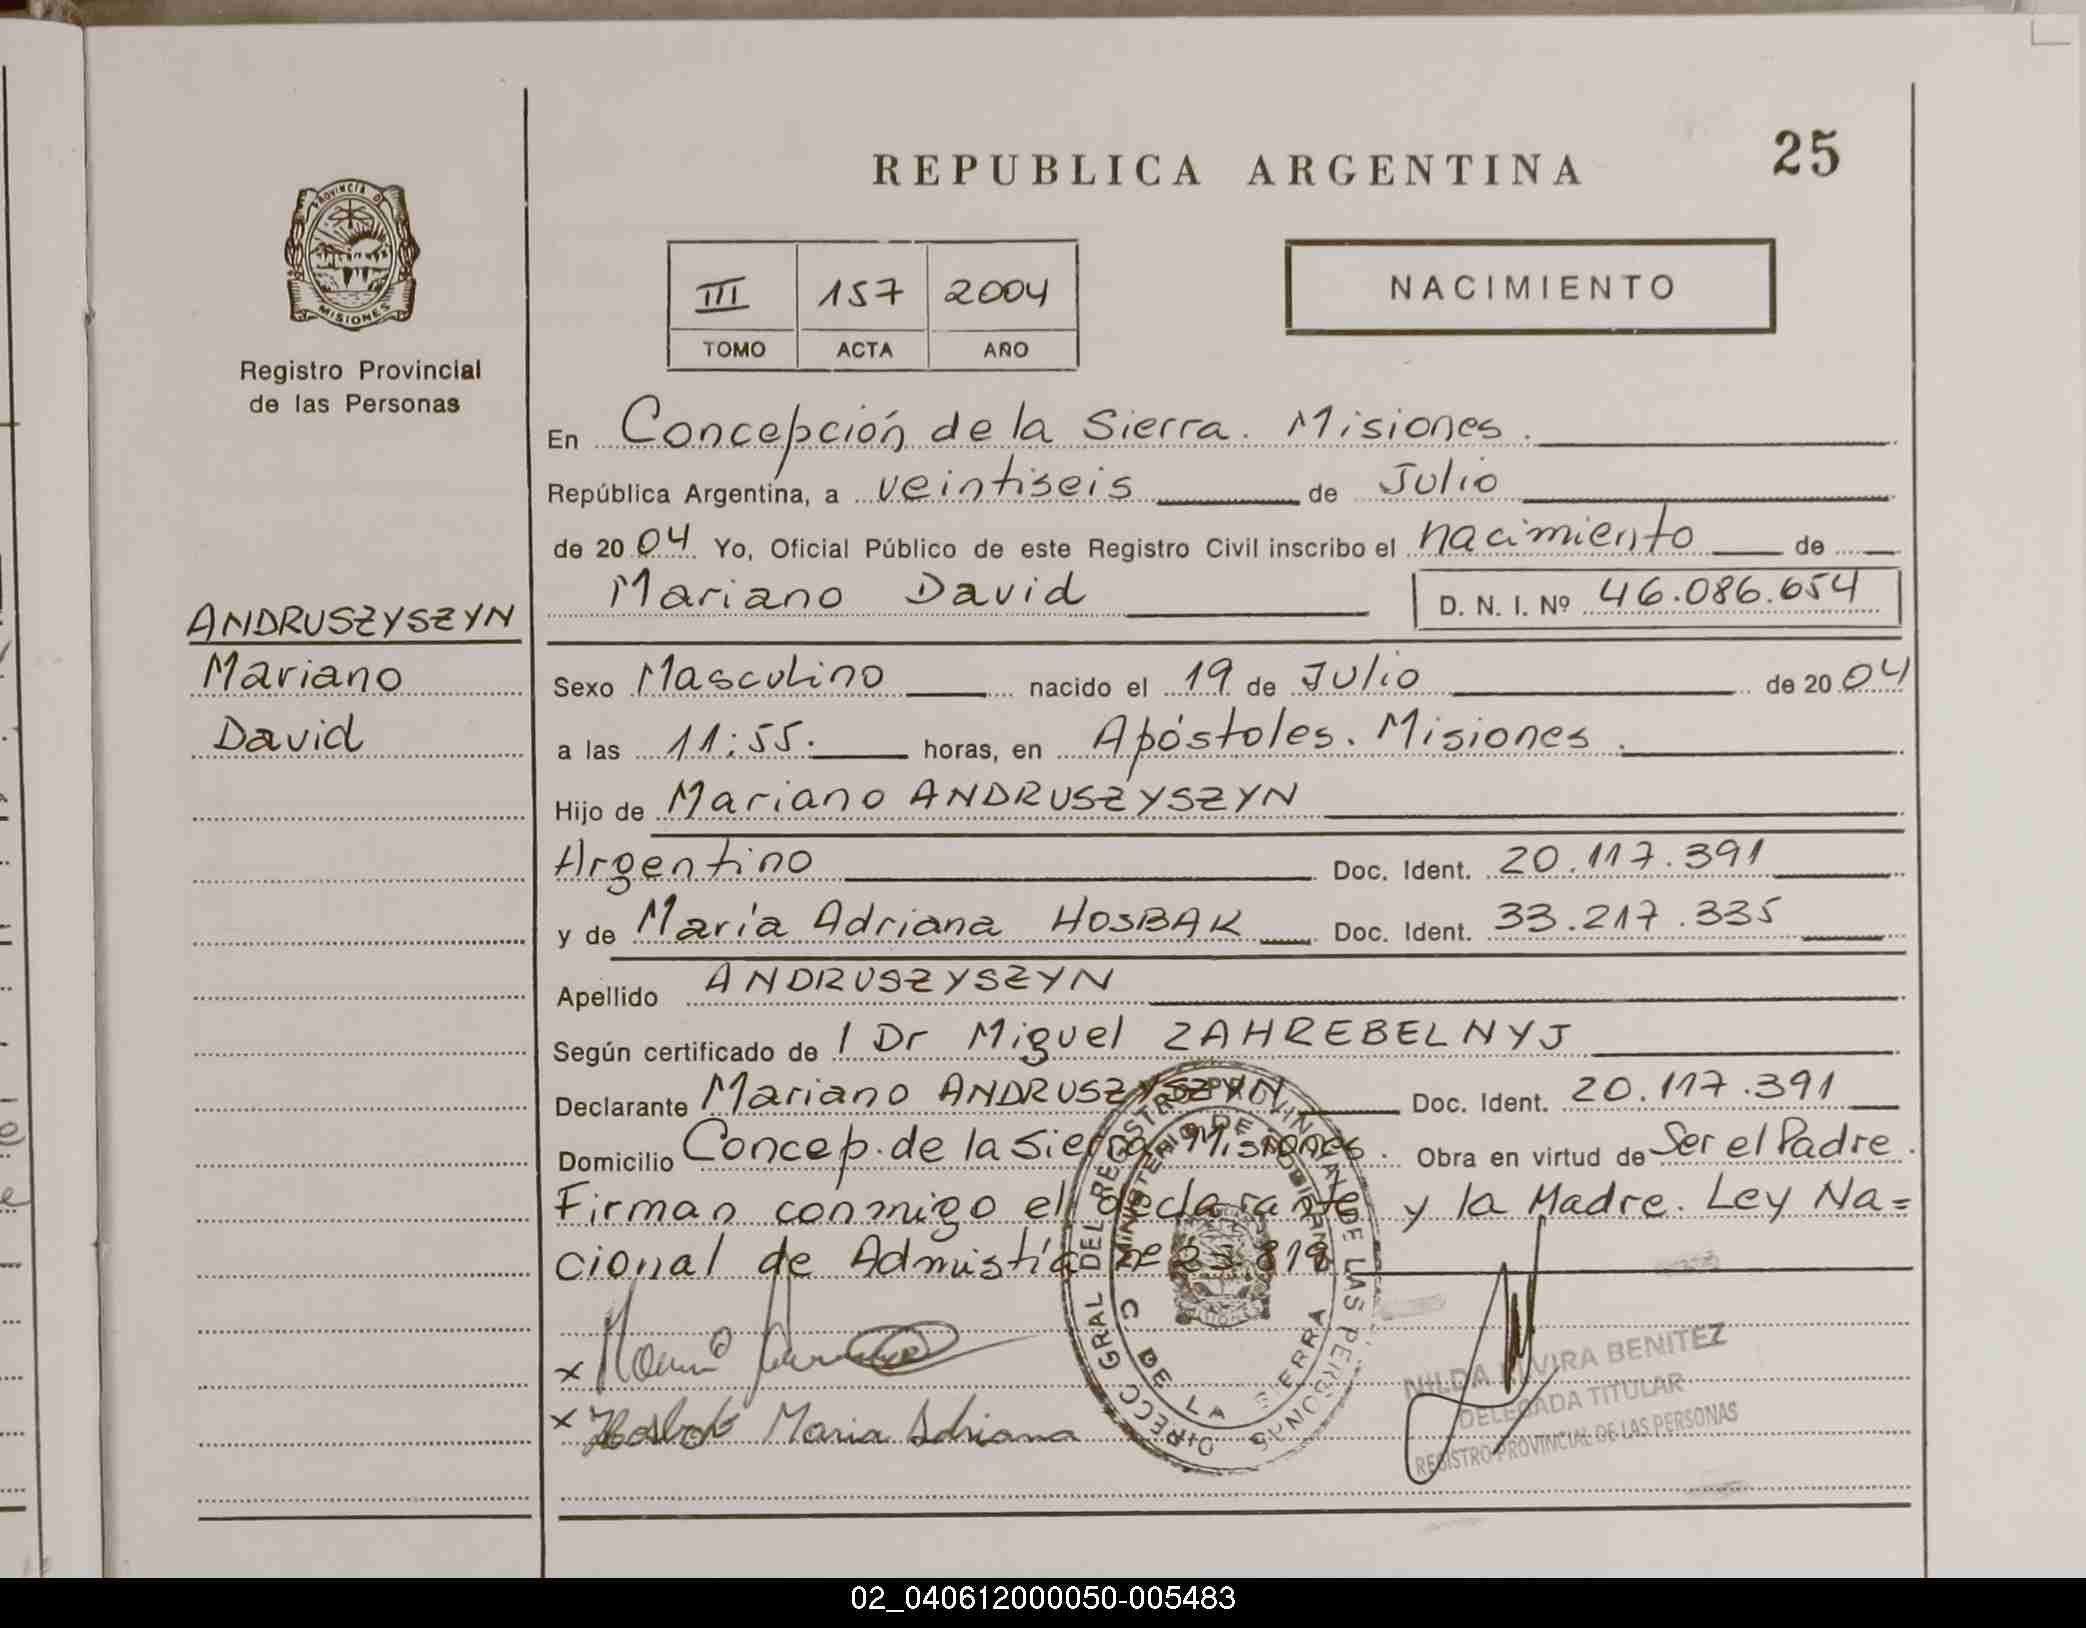 25
REPUBLICA ARGENTINA
PROVINCIA D
MISIONES
Registro Provincial
de las Personas
III 157 2004
TOMO ACTA AÑO
NACIMIENTO
En Concepción de la Sierra. Misiones.
República Argentina, a veintiseis de Julio
de 2004 Yo, Oficial Público de este Registro Civil inscribo el nacimiento de
Mariano David D. N. I. Nº 46.086.654
ANDRUSZYSZYN
Mariano
David
Sexo Masculino nacido el 19 de Julio de 2004
a las 11:55. horas, en Apóstoles. Misiones.
Hijo de Mariano ANDRUSZYSZYN
Argentino Doc. Ident. 20.117.391
y de María Adriana HOSBAK Doc. Ident. 33.217.335
Apellido ANDRUSZYSZYN
Según certificado de / Dr Miguel ZAHREBELNYJ
Declarante Mariano ANDRUSZYSZYN Doc. Ident. 20.117.391
Domicilio Concep. de la Sierra Misiones. Obra en virtud de Ser el Padre.
Firman conmigo el declarante y la Madre. Ley Na=
cional de Admistía nº
DIRECC GRAL DEL REGISTRO PROVINCIAL DE LAS PERSONAS
MINISTERIO DE GOBIERNO
C DE LA SIERRA
x
x Hosbak Maria Adriana
NILDA ELVIRA BENITEZ
DELEGADA TITULAR
REGISTRO PROVINCIAL DE LAS PERSONAS
02_040612000050-005483